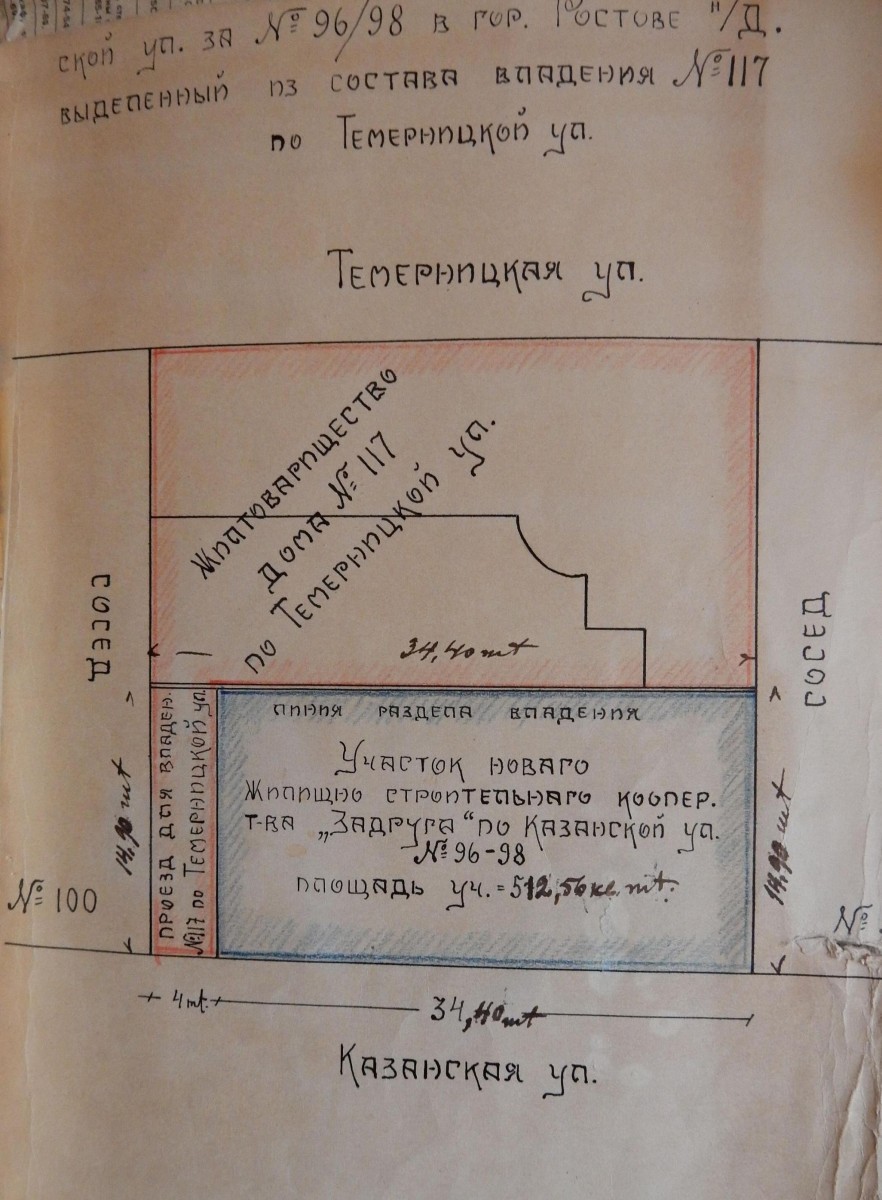 ской ул. за № 96/98 в гор. Ростове н/Д.
выделенный из состава владения № 117
по Темерницкой ул.
Темерницкая ул.
Жилтоварищество
Дома № 117
по Темерницкой ул.
сосед
сосед
34,40 mt
линия раздела владения
проезд для владен.
№ 117 по Темерницкой ул.
Участок новаго
Жилищно строительнаго коопер.
т-ва „Задруга“ по Казанской ул.
№ 96-98
площадь уч. = 512,56 кв. mt.
14,90 mt
14,90 mt
№ 100
№
4 mt.
34,40 mt
Казанская ул.